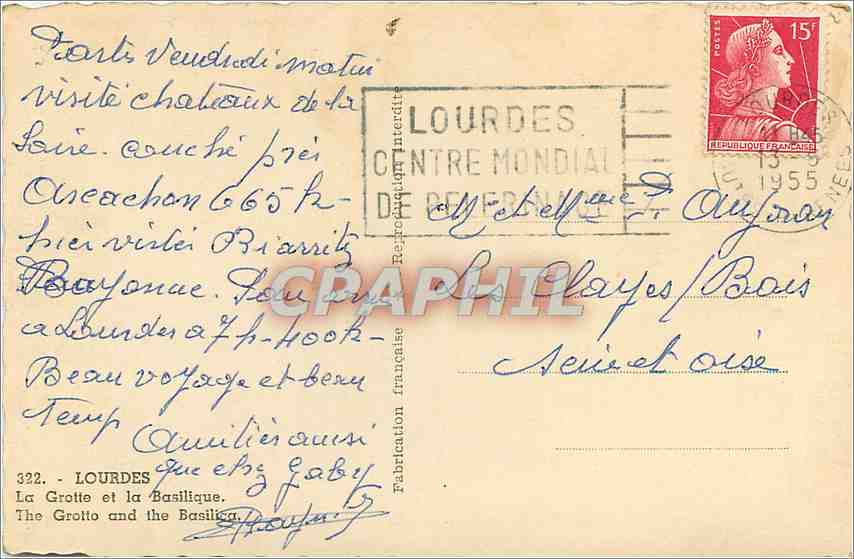 Partis Vendredi matin
visité chateaux de la
Loire. couché près
Arcachon 665 k-
hier visiter Biarritz
Bayonne. Sommes
a Lourdes a 7h - 400 k-
Beau voyage et beau
Temp
Amitiés aussi
que chez Gaby
322. - LOURDES
La Grotte et la Basilique.
The Grotto and the Basilica.
Fabrication française Reproduction interdite
LOURDES
CENTRE MONDIAL
DE PELERINAGE
POSTES
15F
REPUBLIQUE FRANÇAISE
H45
13-5
1955
Mr et Mme
Les Clayes/Bois
Seine et oise
CPAPHIL